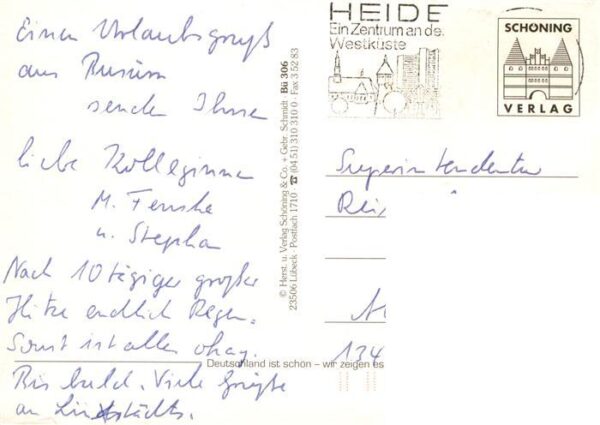 Einen Urlaubsgruß
aus Büsum
senden Ihnen
liebe Kolleginnen
M. Fenske
u. Stephan
Nach 10tägiger großer
Hitze endlich Regen.
Sonst ist alles okay.
Bis bald. Viele Grüße
an
© Herst. u. Verlag Schöning & Co. + Gebr. Schmidt · Bü 306
23506 Lübeck · Postfach 1710 · ☎ (0451) 310 310 0 · Fax 3 52 83
Deutschland ist schön – wir zeigen es
HEIDE
Ein Zentrum an de
Westküste
SCHÖNING
VERLAG
Superintendentur
Rei
134